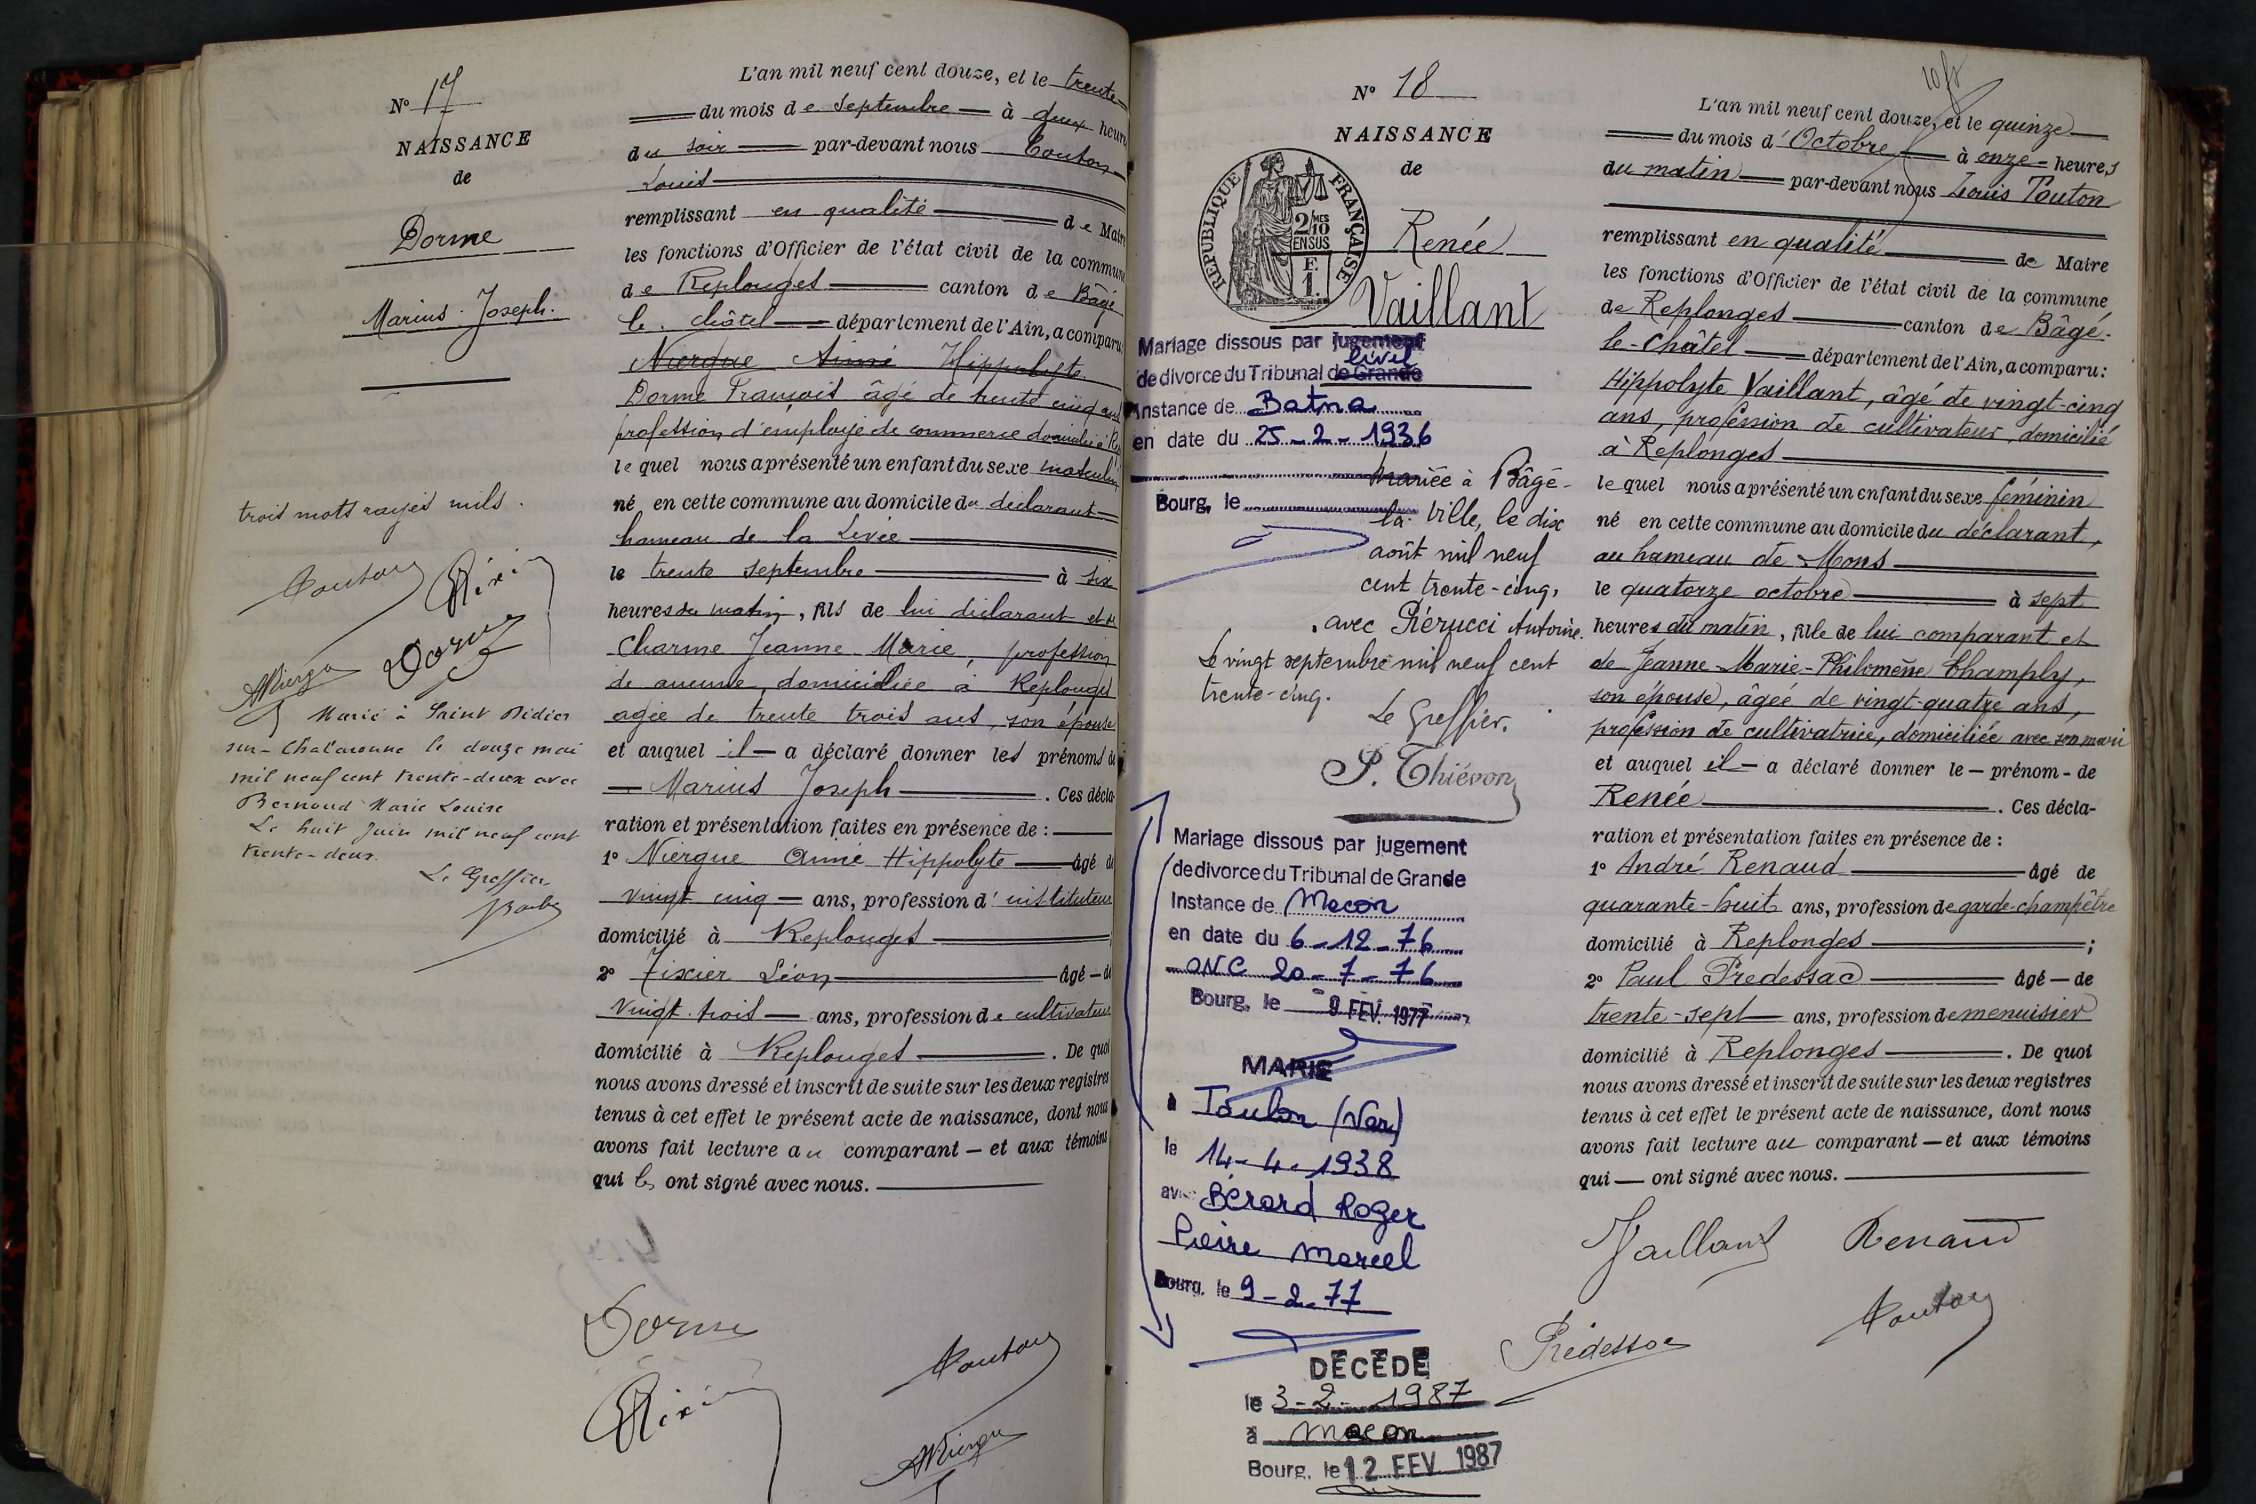 N° 17
NAISSANCE
de
Dorme
Marius Joseph.
trois mots rayés nuls.
Touton
Dorme
Nierque
Marié à Saint Didier
sur-Chalaronne le douze mai
mil neuf cent trente-deux avec
Bernoud Marie Louise
Le huit juin mil neuf cent
trente-deux.
Le Greffier
L'an mil neuf cent douze, et le trente
du mois de Septembre à deux heures
du soir par-devant nous Touton
Louis
remplissant en qualité de Maire
les fonctions d'Officier de l'état civil de la commune
de Replonges canton de Bâgé
le châtel département de l'Ain, a comparu
Nierque Aimé Hippolyte
Dorme François âgé de trente cinq ans
profession d'employé de commerce domicilié à
lequel nous a présenté un enfant du sexe masculin
né en cette commune au domicile du déclarant
hameau de la Levée
le trente septembre à six
heures du matin, fils de lui déclarant et de
Charme Jeanne Marie, profession
de aucune, domiciliée à Replonges
agée de trente trois ans, son épouse
et auquel il a déclaré donner les prénoms de
Marius Joseph. Ces décla-
ration et présentation faites en présence de :
1° Nierque Aimé Hippolyte âgé de
vingt cinq ans, profession d'instituteur
domicilié à Replonges
2° Tixier Léon âgé de
vingt trois ans, profession de cultivateur
domicilié à Replonges. De quoi
nous avons dressé et inscrit de suite sur les deux registres
tenus à cet effet le présent acte de naissance, dont nous
avons fait lecture au comparant et aux témoins
qui les ont signé avec nous.
Dorme
Touton
Nierque
N° 18
NAISSANCE
de
REPUBLIQUE FRANÇAISE
2/10 MES
EN SUS
F.
1.
Renée
Vaillant
Mariage dissous par jugement
civil
de divorce du Tribunal de Grande
Instance de Batna
en date du 25-2-1936
Bourg, le
Mariée à Bâgé-
la-Ville, le dix
août mil neuf
cent trente-cinq,
avec Piérucci Antoine.
Le vingt septembre mil neuf cent
trente-cinq.
Le Greffier.
P. Thiévon
Mariage dissous par jugement
de divorce du Tribunal de Grande
Instance de Macon
en date du 6-12-76
ONC 20-7-76
Bourg, le 9 FEV. 1977
MARIE
à Toulon (Var)
le 14-4-1938
avec Bérard Roger
Pierre Marcel
Bourg, le 9-2-77
DÉCÉDÉ
le 3-2-1987
à Macon
Bourg, le 12 FEV 1987
L'an mil neuf cent douze, et le quinze
du mois d'Octobre à onze heures
du matin par-devant nous Louis Touton
remplissant en qualité de Maire
les fonctions d'Officier de l'état civil de la commune
de Replonges canton de Bâgé-
le-Châtel département de l'Ain, a comparu :
Hippolyte Vaillant, âgé de vingt-cinq
ans, profession de cultivateur, domicilié
à Replonges
lequel nous a présenté un enfant du sexe féminin
né en cette commune au domicile du déclarant,
au hameau de Mons
le quatorze octobre à sept
heures du matin, fille de lui comparant et
de Jeanne-Marie-Philomène Champly,
son épouse, âgée de vingt-quatre ans,
profession de cultivatrice, domiciliée avec son mari
et auquel il a déclaré donner le prénom de
Renée. Ces décla-
ration et présentation faites en présence de :
1° André Renaud âgé de
quarante-huit ans, profession de garde-champêtre
domicilié à Replonges ;
2° Paul Predessac âgé de
trente-sept ans, profession de menuisier
domicilié à Replonges. De quoi
nous avons dressé et inscrit de suite sur les deux registres
tenus à cet effet le présent acte de naissance, dont nous
avons fait lecture au comparant et aux témoins
qui ont signé avec nous.
Vaillant Renaud
Prédessac
Touton